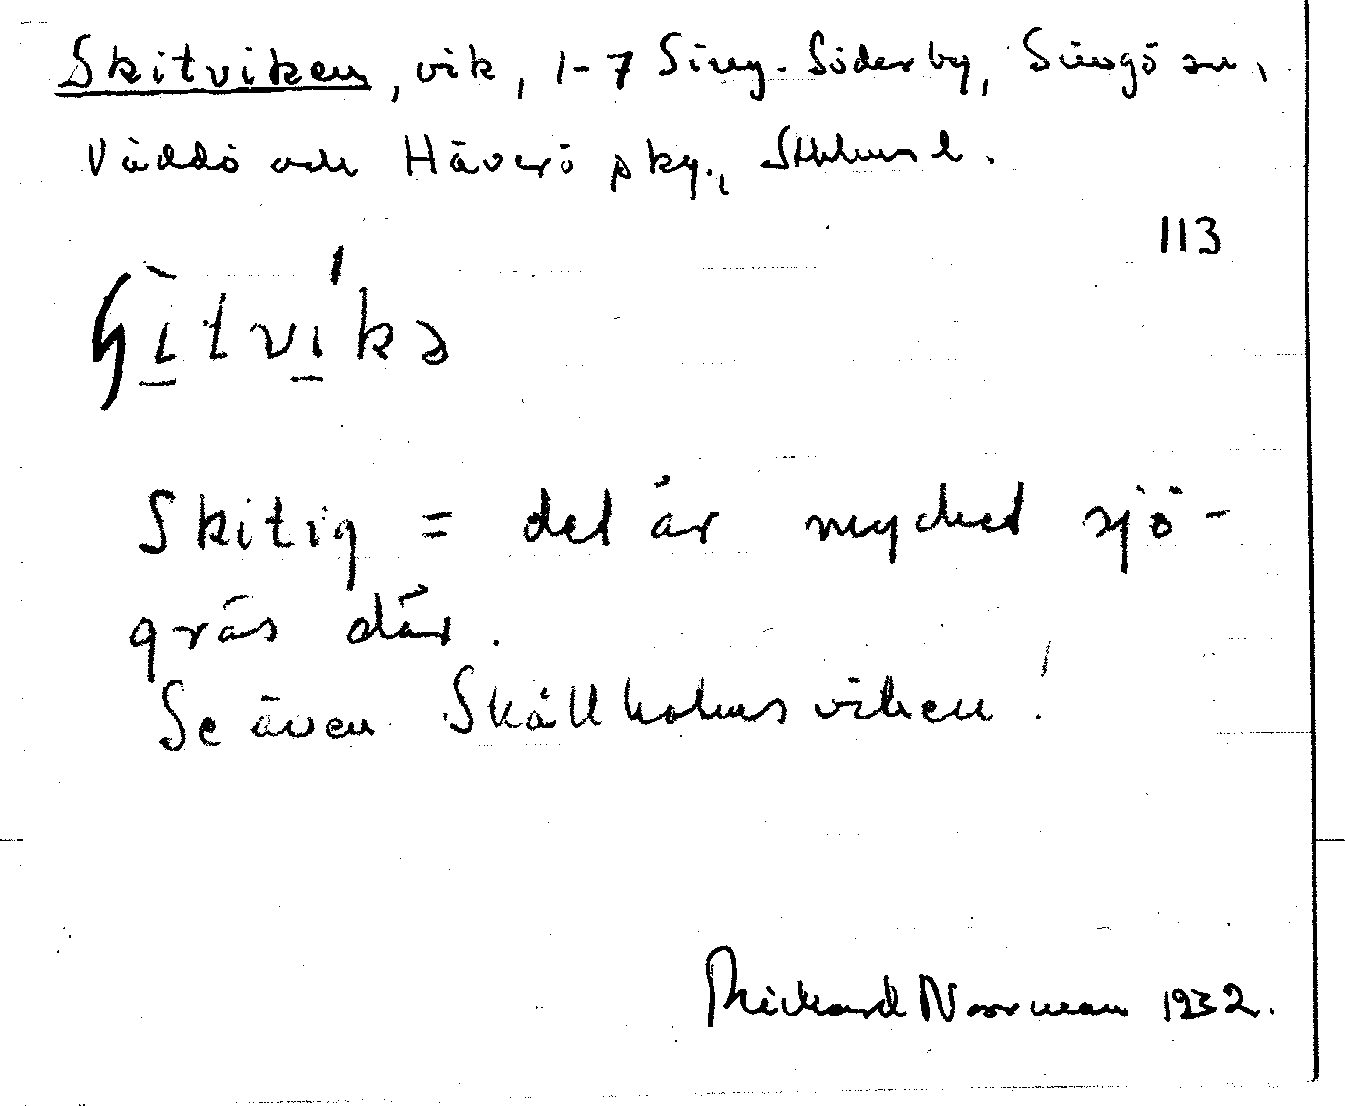 Skitviken, vik, 1-7 Sing-Söderby, Singö sn,
Väddö och Häverö skg., Sthlms l.
113
Skitig = det är mycket sjö-
gräs där.
Se även Skållholmsviken!
Rickard Norrman 1932.